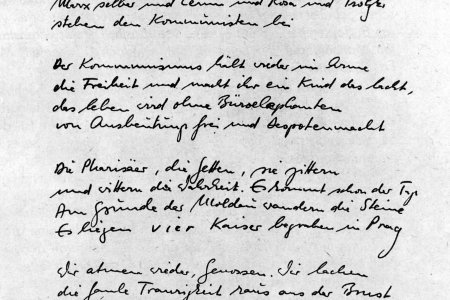 Marx selber und Lenin und Rosa und Trotzki
stehen den Kommunisten bei
Der Kommunismus hält wieder im Arme
die Freiheit und macht ihr ein Kind das lacht,
das Leben wird ohne Büroelephanten
von Ausbeutung frei und Despotenmacht
Die Pharisäer, die fetten, sie zittern
und wittern die Wahrheit. Es kommt schon der Tag
Am Grunde der Moldau wandern die Steine
Es liegen vier Kaiser begraben in Prag
Wir atmen wieder, Genossen. Wir lachen
die faule Traurigkeit raus aus der Brust